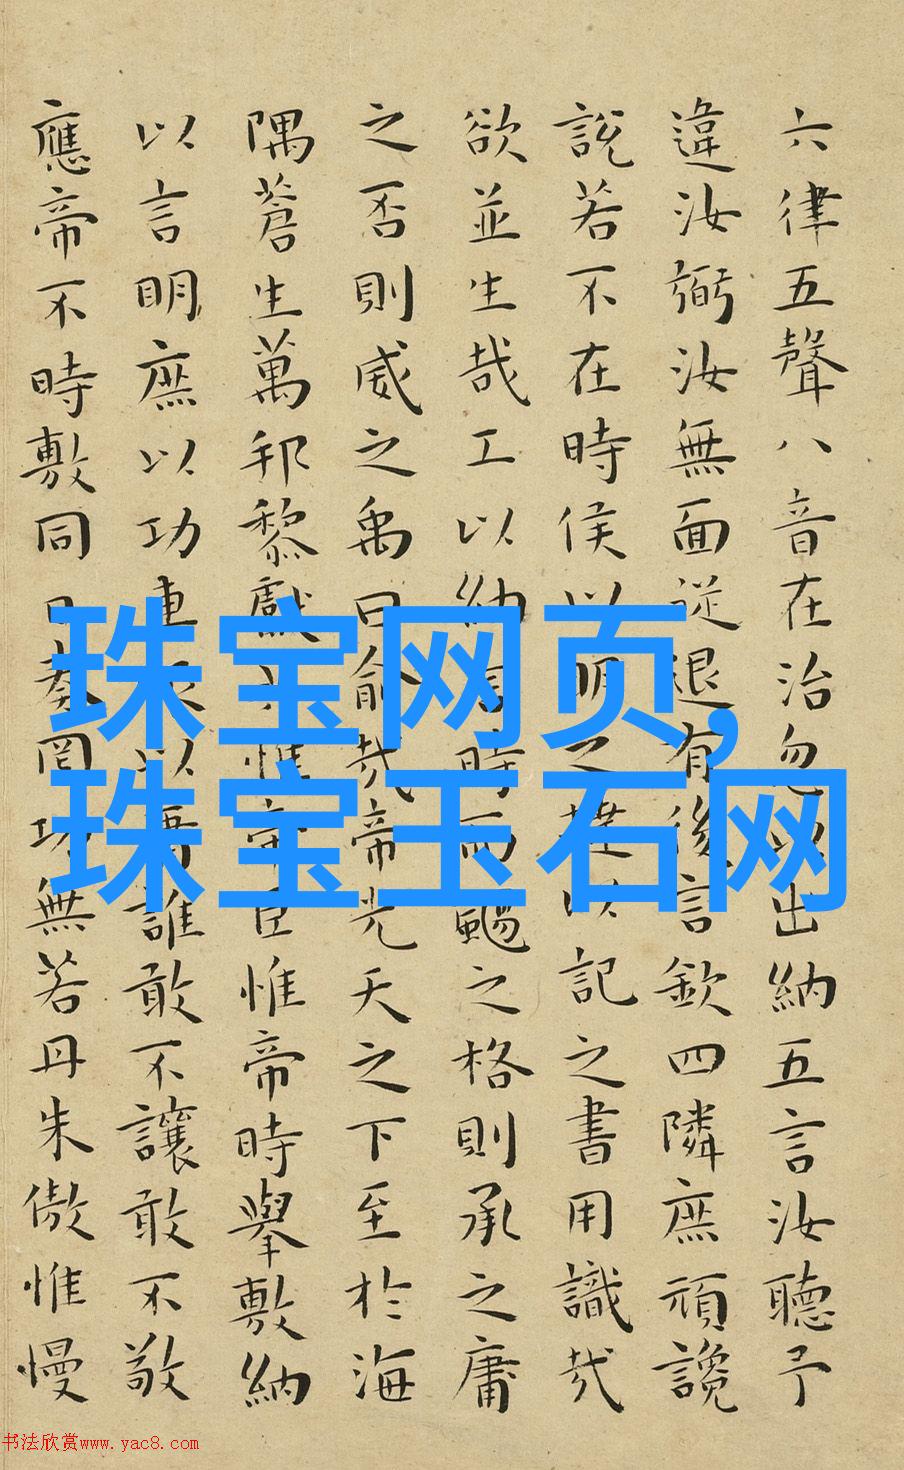 六律五聲八音在治忽出納五言汝聽予
違汝弼汝無面從退有後言欽四隣庶頑讒
說若不在時侯以明之以記之書用識哉
欲並生哉工以納言時而颺之格則承之庸
之否則威之禹曰俞哉帝光天之下至於海
隅蒼生萬邦黎獻惟帝臣惟帝時舉敷納
以言明庶以功車以誰敢不讓敢不敬
應帝不時敷同日奏罔功無若丹朱傲惟慢
珠宝网页,
珠宝玉石网
书法欣赏www.yac8.com